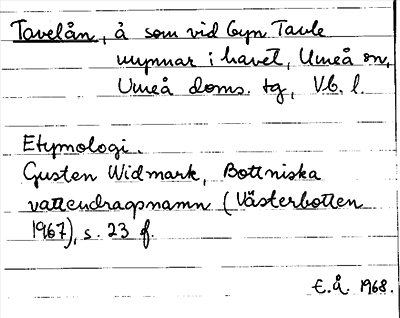 Tavelån, å som vid byn Tavle
mynnar i havet, Umeå sn,
Umeå doms. tg, Vb. l.
Etymologi.
Gusten Widmark, Bottniska
vattendragsnamn (Västerbotten
1967), s. 23 f.
E.Å. 1968.